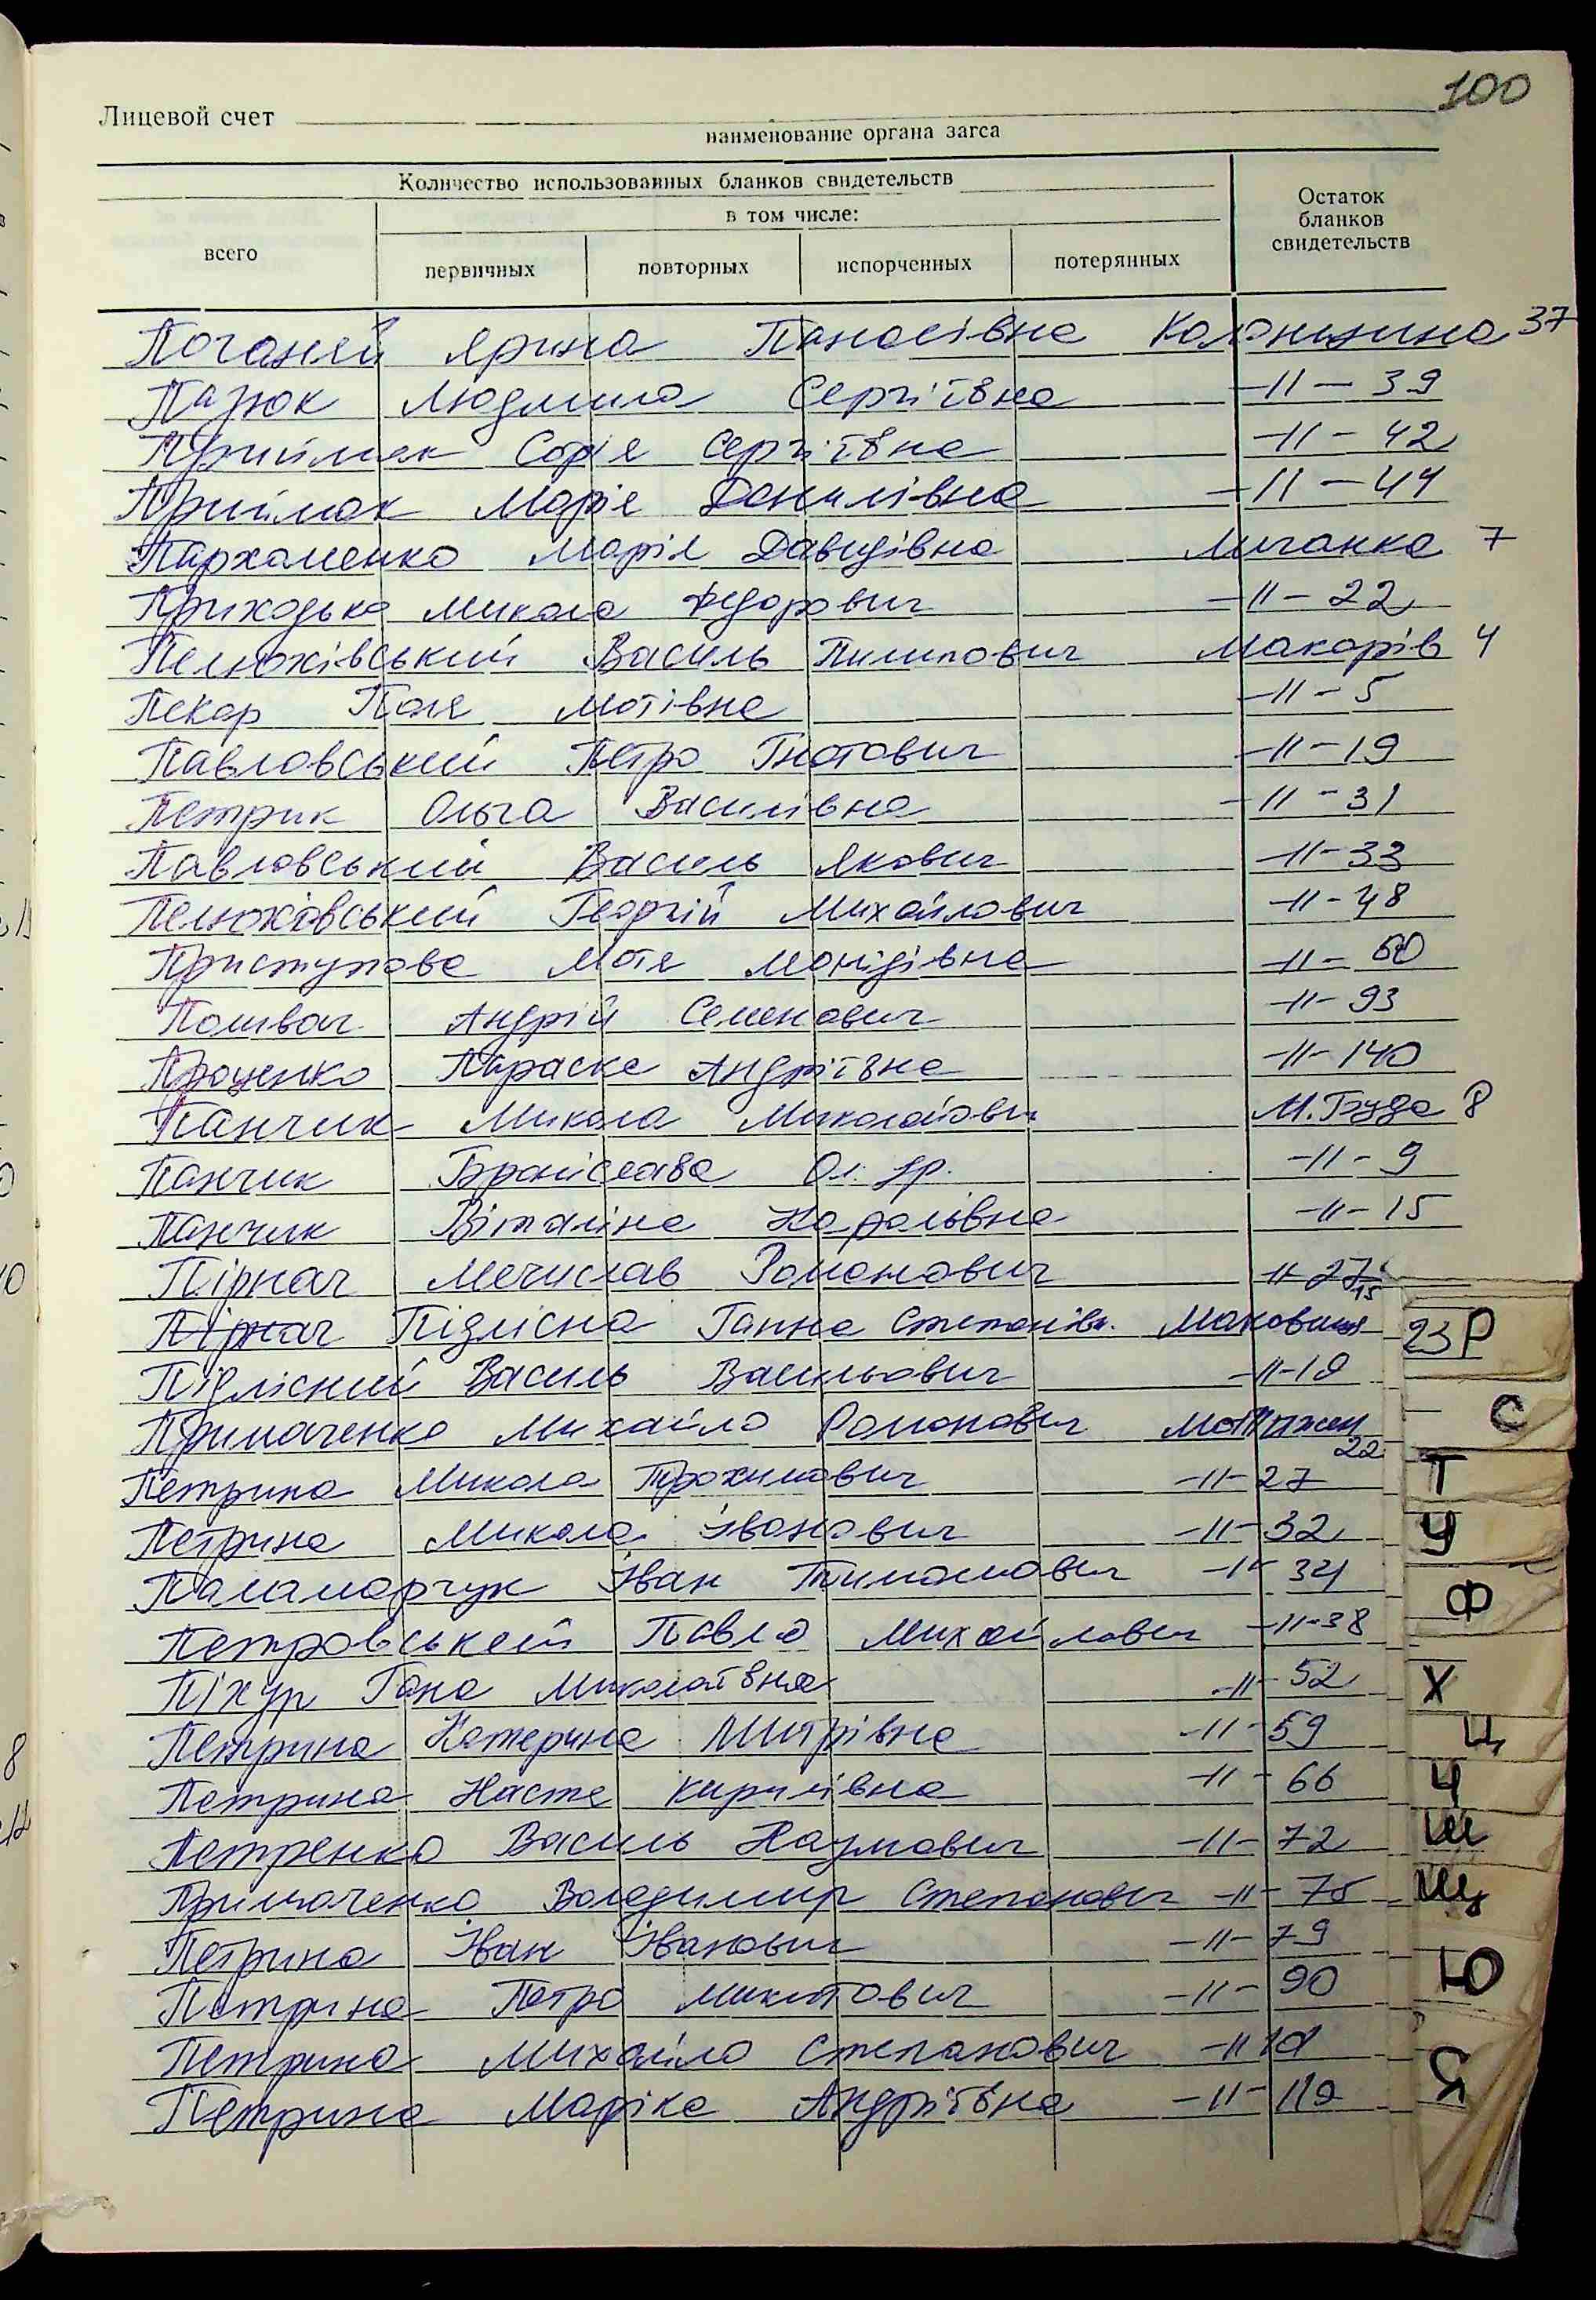 100
Лицевой счет
наименование органа загса
Количество использованных бланков свидетельств
Остаток бланков свидетельств
в том числе:
всего
первичных повторных испорченных потерянных
Поганяй Ярина Панасівна 37
Пазюк Людмила Сергіївна -11- 39
Приймак Софія Сергіївна -11- 42
Приймак Марія Данилівна -11- 44
Пархоменко Марія Давидівна Личанка 7
Приходько Микола Федорович -11- 22
Пелюхівський Василь Пилипович Макарів 4
Пекар Поля Мотівна -11- 5
Павловський Петро Гнатович -11- 19
Петрик Ольга Василівна -11- 31
Павловський Василь Якович -11- 33
Пелюховський Георгій Михайлович -11- 48
Приступова Мотя -11- 60
Пошвач Андрій Семенович -11- 93
Проценко Параска Андріївна -11- 140
Панчик Микола Миколайович М.Буда 8
Панчик Броніслава Ол. -11- 9
Панчик Віталіна Карольівна -11- 15
Пірнач Мечислав Романович -11- 27
Пірнач Підлісна Ганна Степанівн. Маковище 15
Підлісний Василь Васильович -11- 18
Примаченко Михайло Романович Мотижин 22
Петрина Микола Трохимович -11- 27
Петрина Микола Іванович -11- 32
Паламарчук Іван Тимошович -11- 34
Петровський Павло Михайлович -11- 38
Піхур Гана Миколаївна -11- 52
Петрина Катерина Митрівна -11- 59
Петрина Настя Кирилівна -11- 66
Петренко Василь Наумович -11- 72
Примаченко Володимир Степанович -11- 75
Петрина Іван Іванович -11- 79
Петрина Петро Микитович -11- 90
Петрина Михайло Степанович -11
Петрина Маріка Андріївна -11- 112
Р
С
Т
У
Ф
Х
Ц
Ч
Ш
Щ
Ю
Я